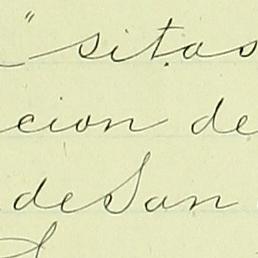 " sitas
cion de
de San